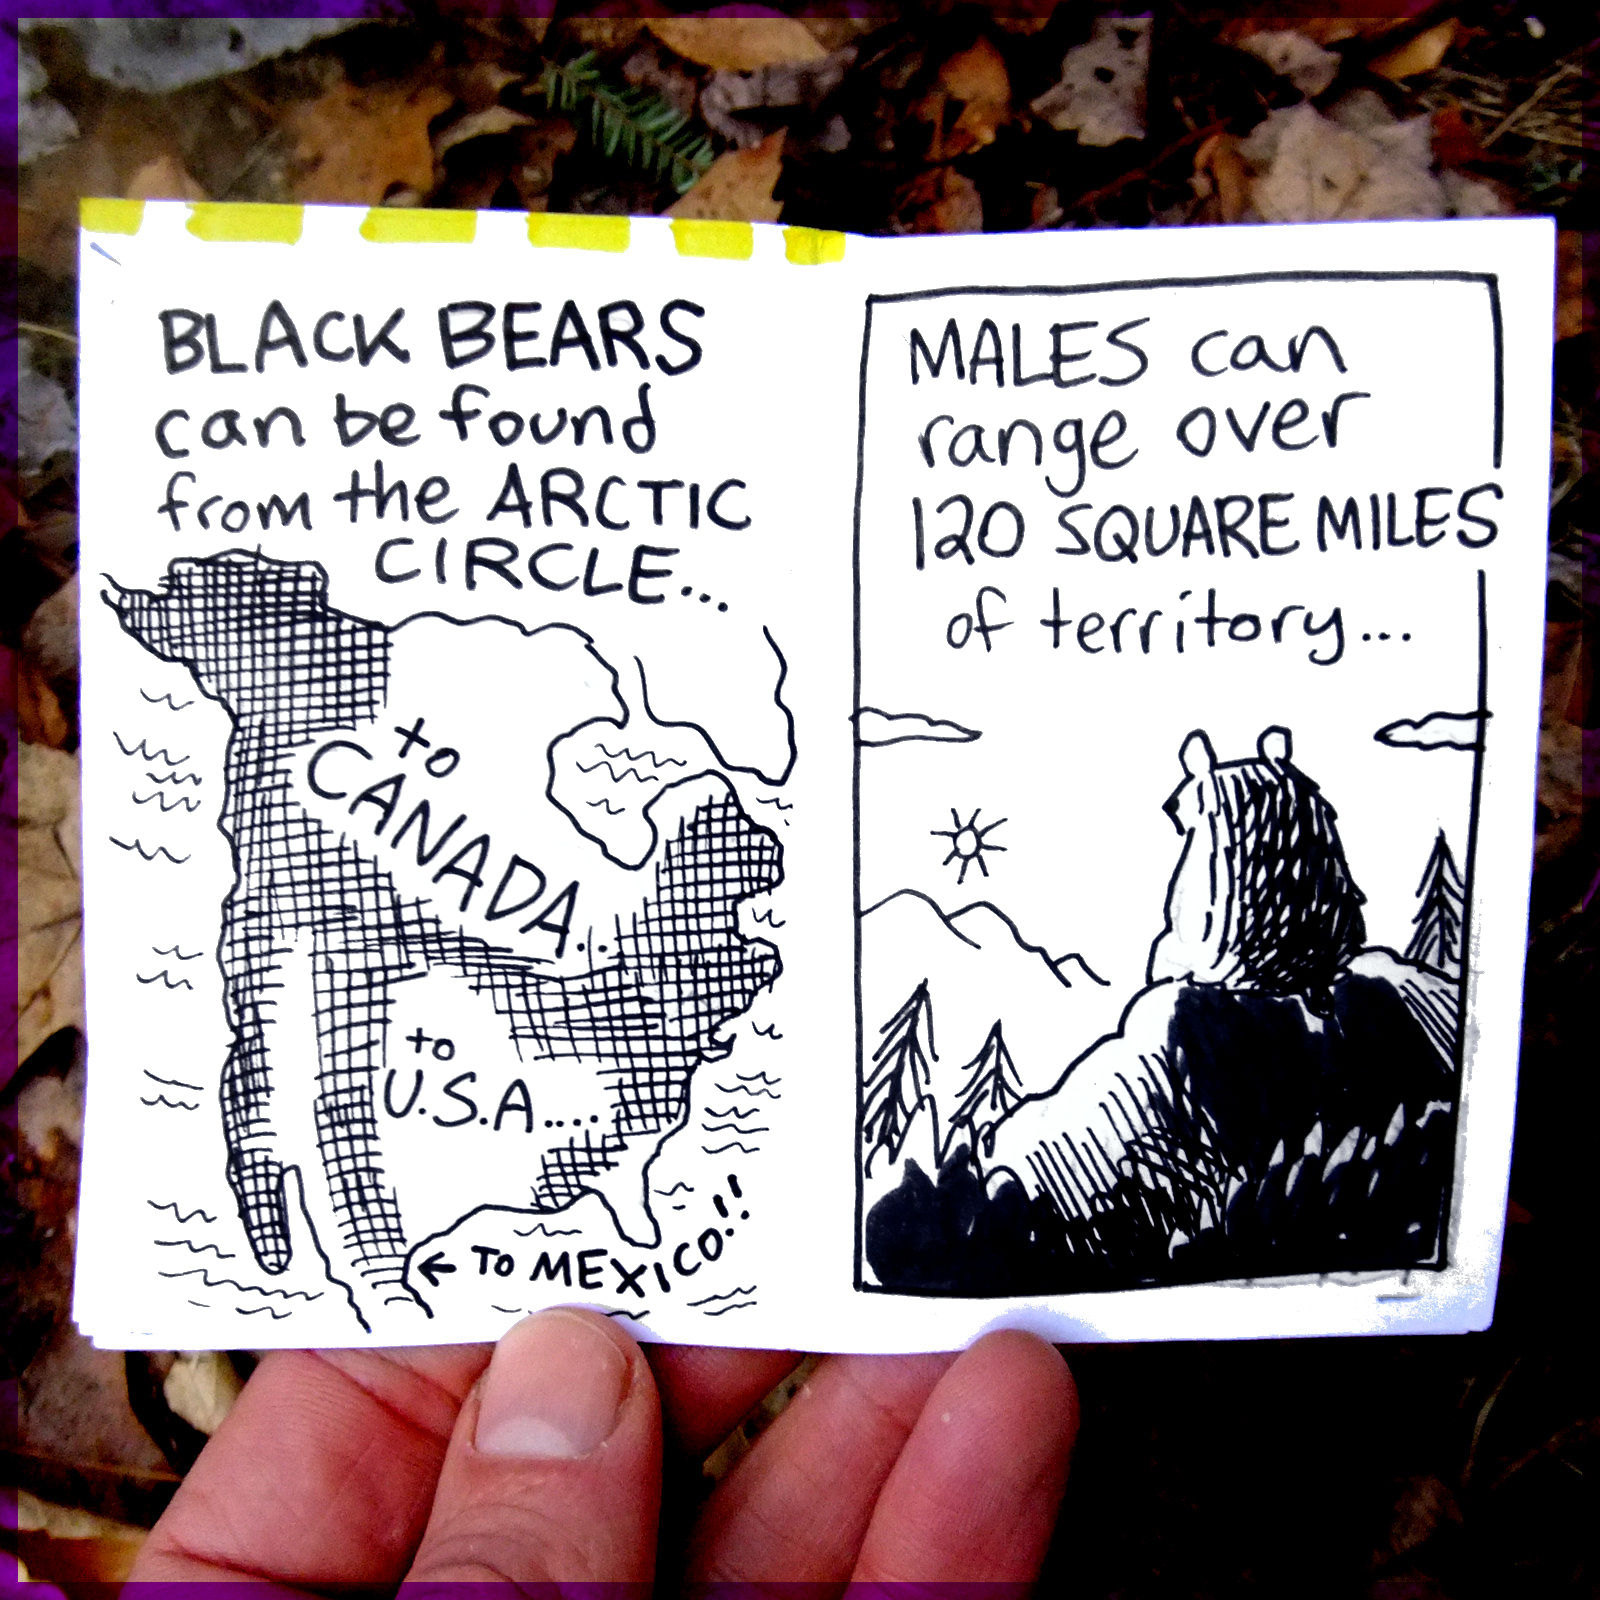 BLACK BEARS
can be found
from the ARCTIC
CIRCLE...
to
CANADA...
to
U.S.A....
← TO MEXICO!!
MALES can
range over
120 SQUARE MILES
of territory...